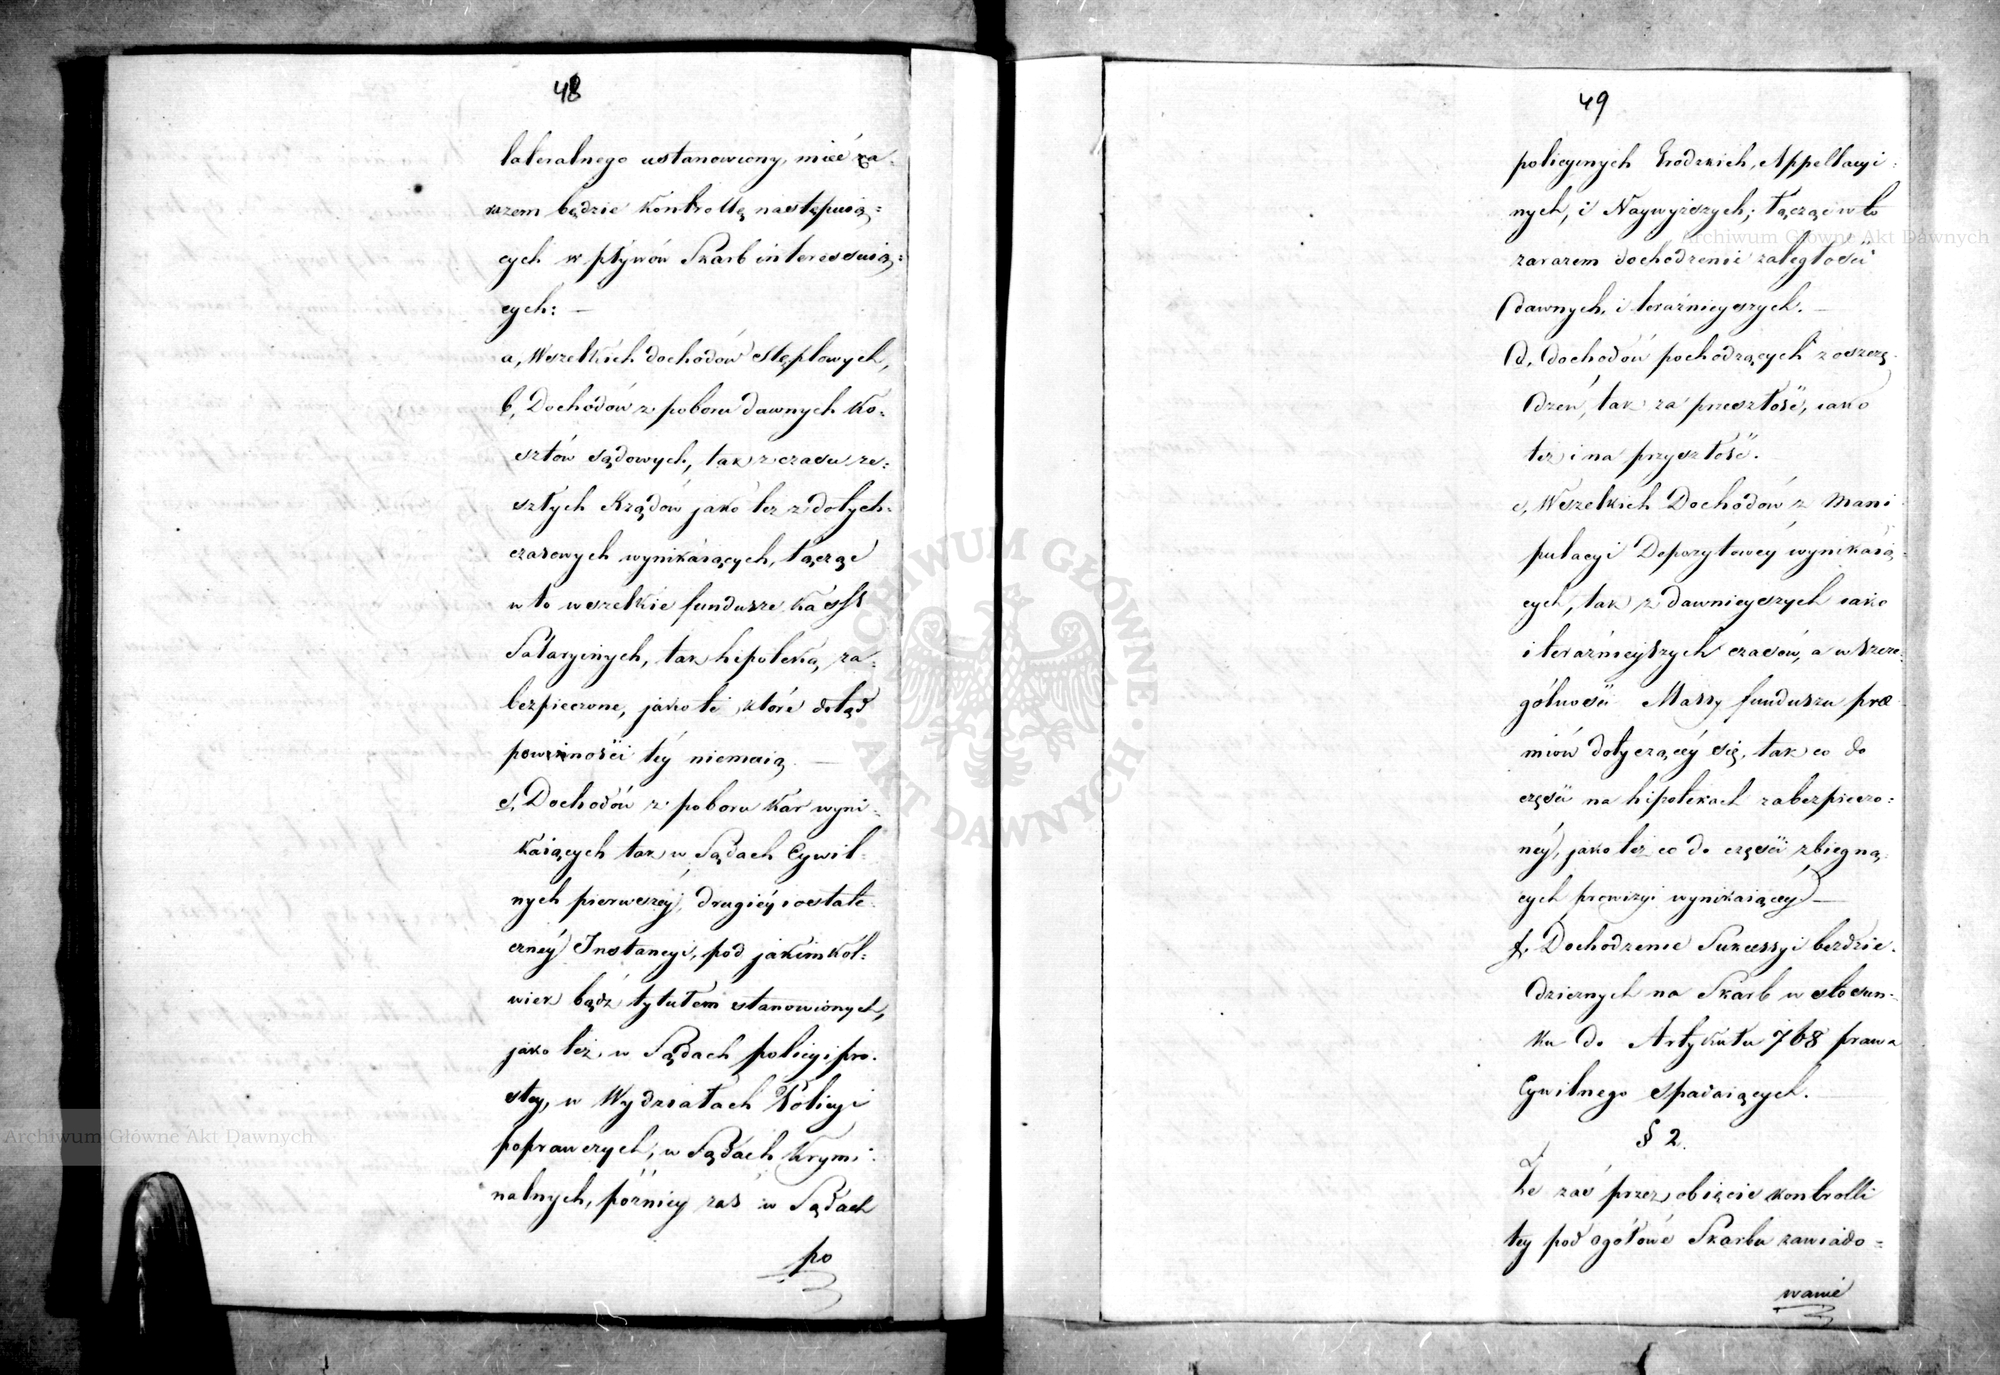 48
lateralnego ustanowiony, mieć za-
razem będzie Kontrollę następuią=
cych wpływów Skarb interessuią=
cych: —
a, Wszelkich dochodów stęplowych,
b, Dochodów z poboru dawnych Ko-
sztów sądowych, tak z czasu ze-
szłych Rządów jako też z dotych-
czasowych wynikaiących, łącząc
w to wszelkie fundusze Kassy
Salaryinych, tak hipoteką za-
bezpieczone, jako te które dotąd
pewności téy niemaią. —
c, Dochodów z poboru Kar wyni-
kaiących tak w Sądach Cywil-
nych pierwszey, drugiéy i ostate-
cznéy Instancyi, pod jakimkol-
wiek bądź tytułem stanowionych,
jako też w Sądach policyi pro-
stey, w Wydziałach Policyi
poprawczych, w Sądach Krymi-
nalnych, późniéy zaś w Sądach
po
49
policyinych Grodzkich, Appellacyi-
nych, i Naywyższych; łącząc w to
zarazem dochodzenie zaległości
dawnych, i teraźnieyszych. —
d, dochodów pochodzących z oszczę-
dzeń, tak za przeszłość, iako
też i na przyszłość.
e, Wszelkich Dochodów z Mani-
pulacyi Depozytowey wynikaią-
cych, tak z dawnieyszych iako
i teraźnieyszych czasów, a w szcze-
gólności Massy funduszu præ-
miów dotyczącéy się, tak co do
części na hipotekach zabezpieczo-
néy, jako też co do części z biegną-
cych prowizyi wynikaiącéy —
f, Dochodzenie Sukcessyi bezdzie-
dzicznych na Skarb w stosun-
ku do Artykułu 768 prawa
Cywilnego spadaiących. —
§ 2.
Że zaś przez obięcie kontrolli
tey pod ogółowé Skarbu zawiado=
wanie
Archiwum Główne Akt Dawnych
Archiwum Główne Akt Dawnych
ARCHIWUM GŁÓWNE · AKT DAWNYCH ·